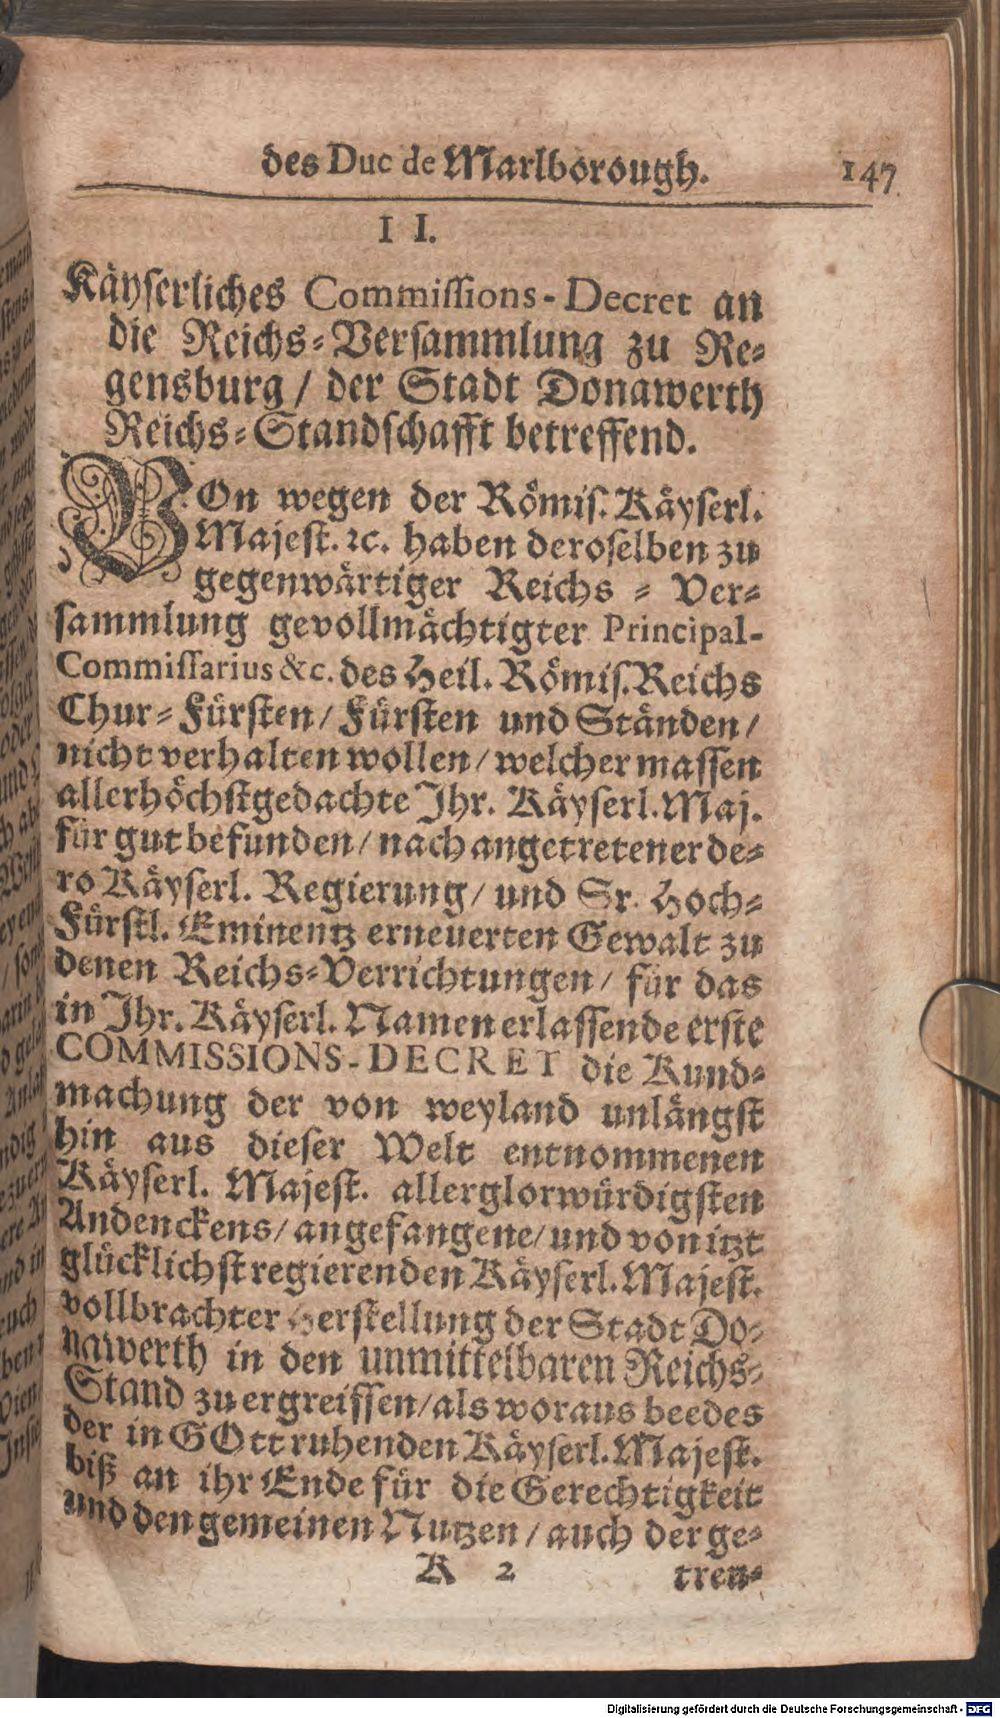 des Duc de Marlborough. 147
II.
Käyserliches Commissions-Decret an
die Reichs-Versammlung zu Re-
gensburg / der Stadt Donawerth
Reichs-Standschafft betreffend.
VOn wegen der Römis. Käyserl.
Majest. ꝛc. haben deroselben zu
gegenwärtiger Reichs-Ver-
sammlung gevollmächtigter Principal-
Commissarius &c. des Heil. Römis. Reichs
Chur-Fürsten / Fürsten und Ständen /
nicht verhalten wollen / welcher massen
allerhöchstgedachte Ihr. Käyserl. Maj.
für gut befunden / nach angetretener de-
ro Käyserl. Regierung / und Sr. Hoch-
Fürstl. Eminentz erneuerten Gewalt zu
denen Reichs-Verrichtungen / für das
in Ihr. Käyserl. Namen erlassende erste
COMMISSIONS-DECRET die Kund-
machung der von weyland unlängst
hin aus dieser Welt entnommenen
Käyserl. Majest. allerglorwürdigsten
Andenckens / angefangene / und von itzt
glücklichst regierenden Käyserl. Majest.
vollbrachter Herstellung der Stadt Do-
nawerth in den unmittelbaren Reichs-
Stand zu ergreiffen / als woraus beedes
der in GOtt ruhenden Käyserl. Majest.
biß an ihr Ende für die Gerechtigkeit
und den gemeinen Nutzen / auch der ge-
K 2 treu-
Digitalisierung gefördert durch die Deutsche Forschungsgemeinschaft - DFG